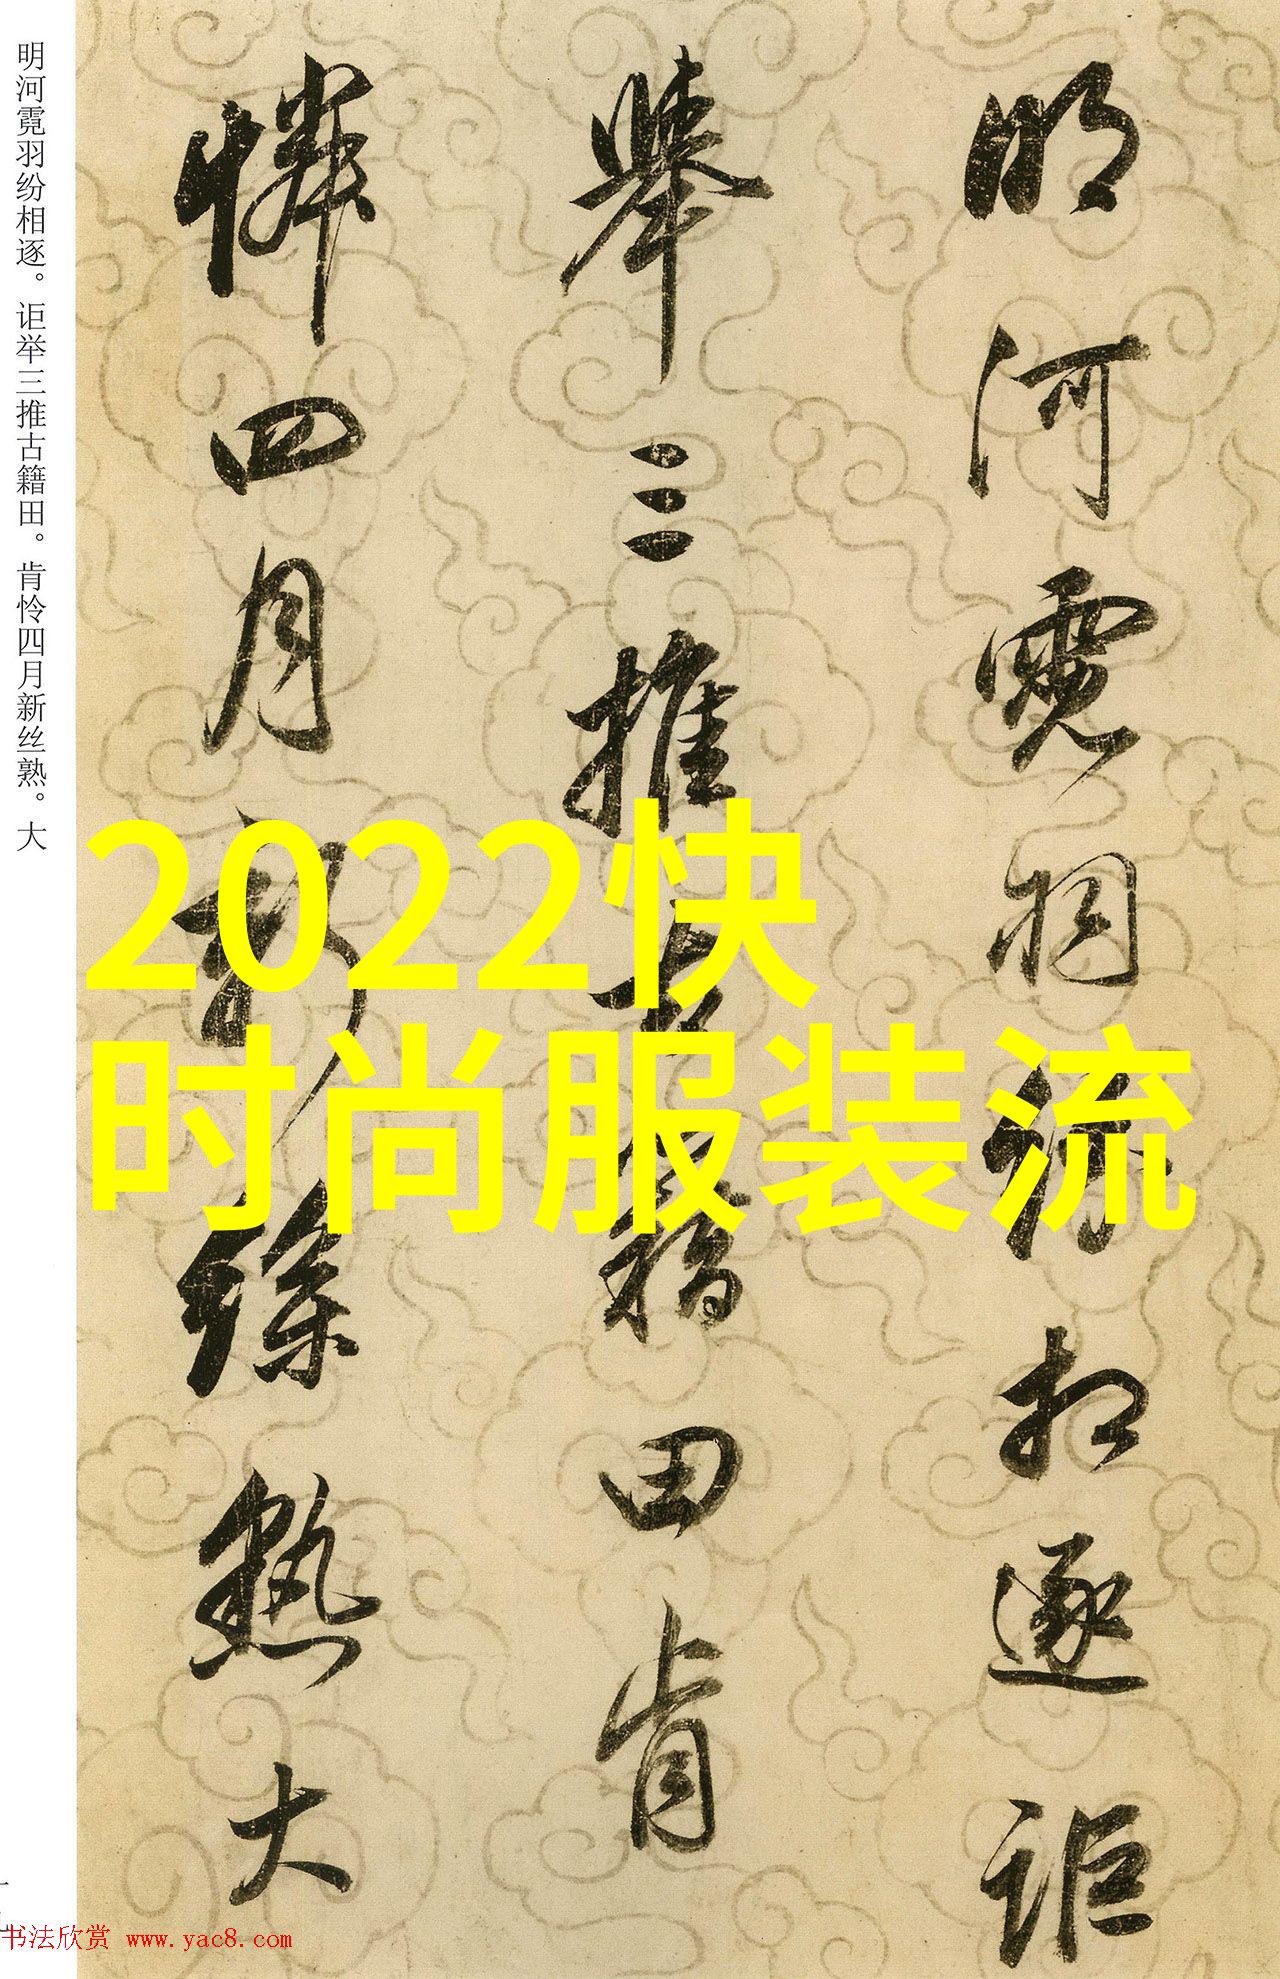 明河霓羽纷相逐。讵举三推古籍田。肯怜四月新丝熟。大
明河霓羽纷相逐讵
举三推古籍田肯
怜四月新丝熟大
2022快
时尚服装流
书法欣赏 www.yac8.com